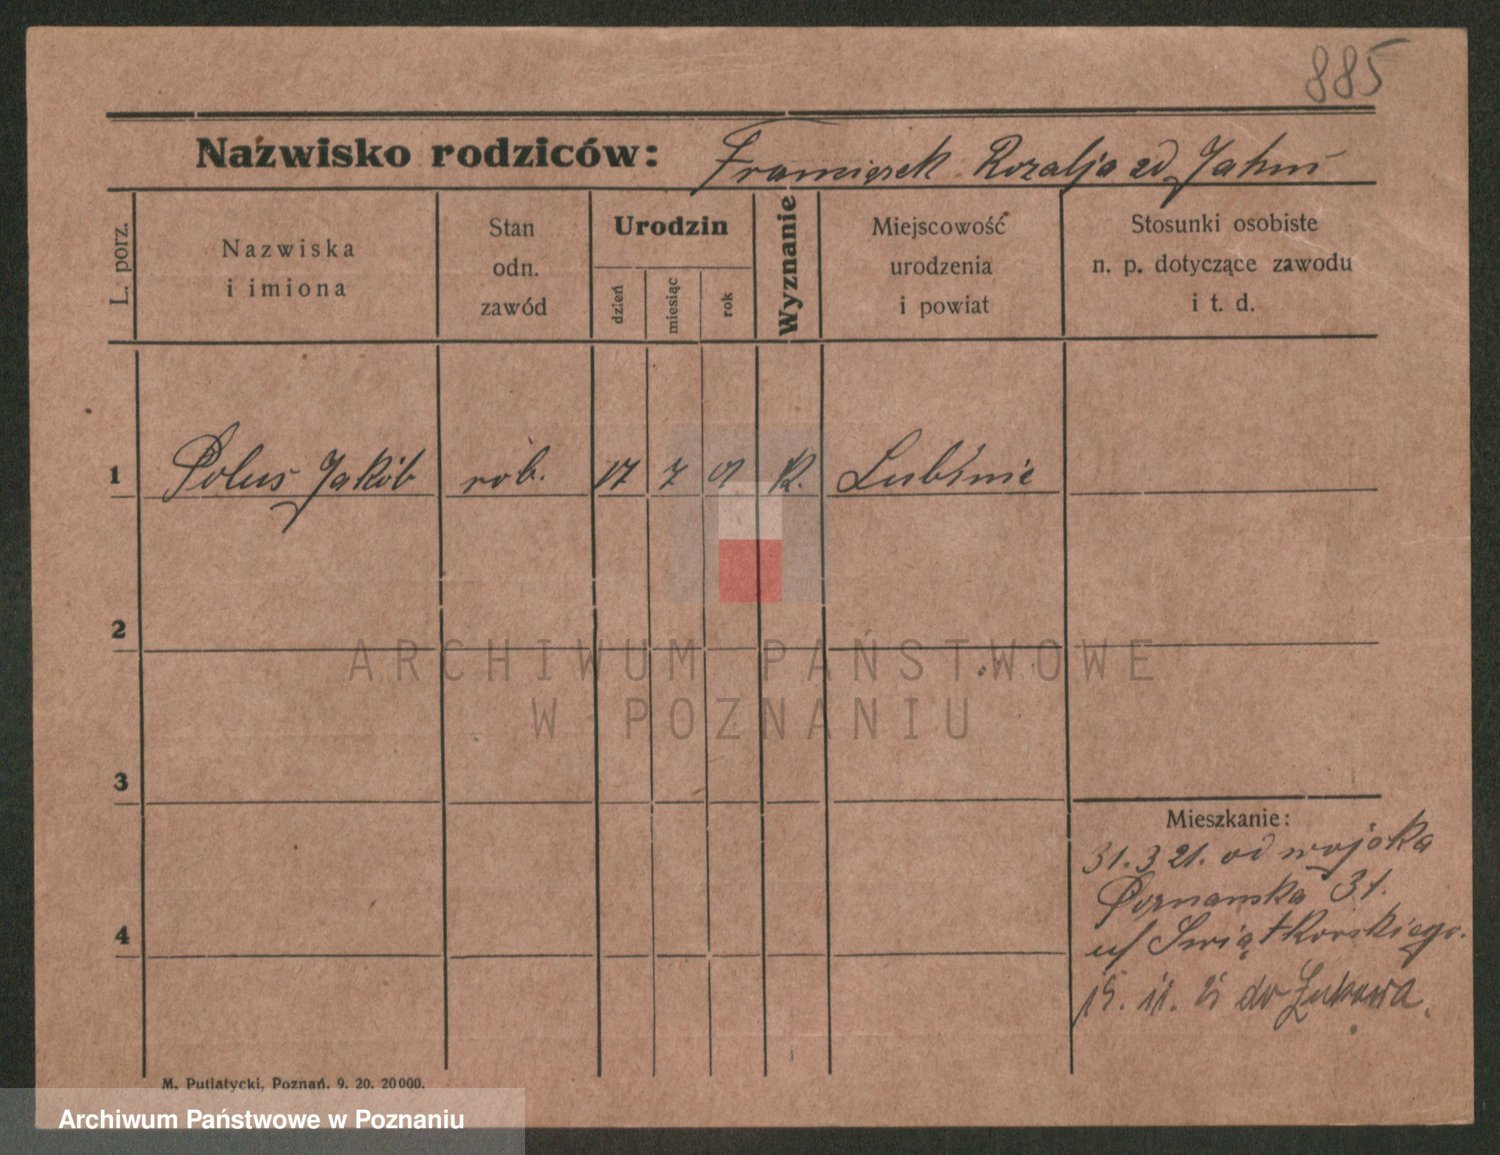 885
Nazwisko rodziców: Franciszek Rozalja zd Jahns
L. porz.
Nazwiska
i imiona
Stan
odn.
zawód
Urodzin
dzień
miesiąc
rok
Wyznanie
Miejscowość
urodzenia
i powiat
Stosunki osobiste
n. p. dotyczące zawodu
i t. d.
1 Polus Jakób rob. 17 7 01 R. Lubinie
2
ARCHIWUM PAŃSTWOWE
W POZNANIU
3
Mieszkanie:
31.3 21. od wojska
Poznanska 31.
u/ Swiątkowskiego.
4
15. 11. 21 do Żukowa.
M. Putiatycki, Poznań. 9. 20. 20000.
Archiwum Państwowe w Poznaniu